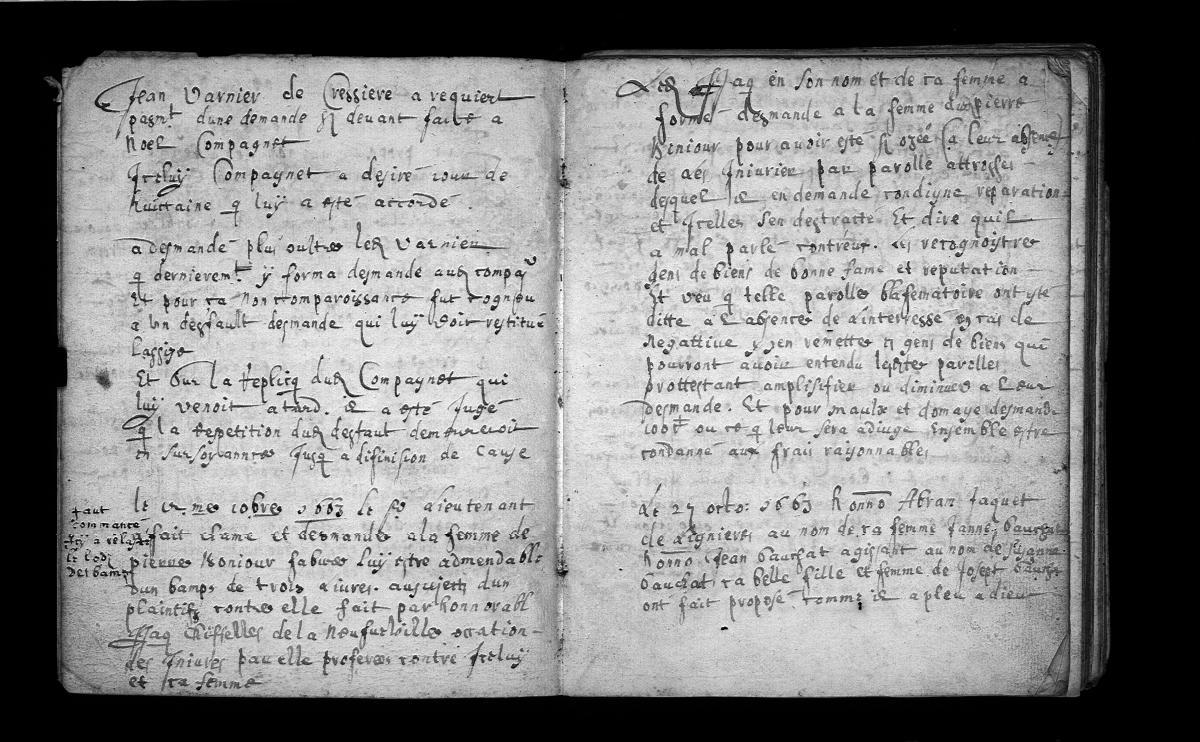 Jean Varnier de Cressiere a requiert
pasmt dune demande cy devant faite a
Noel Compagnet
Iceluy Compagnet a desiré jour de
huictaine q luy a esté accordé
a desmandé plus oultre led Varnier
q dernieremt y forma desmande aud compagt
Et pour sa non comparoissance fut cogneu
a un desfault desmande qui luy doit restitué
Lassize
Et Sur la replicq dud Compagnet qui
luy venoit a tard. il a esté Jugé
q la repetition dud desfaut demeureroit
en sursoyance Jusq a difinision de Cause
Le 12me 10bre 1663 le Sr Lieutenant
fait clame et desmande a la femme de
pierre Koniour fabvre luy estre admendable
dun bamp de trois Livres. au sujectz dun
plaintif contre elle fait par honnorabl
Jaq Chiffelles de la Neufvetville occation
des Iniures par elle proferees contre Iceluy
et sa femme
faut
commance
icy a relaste
le lod
des bamps
Led Jaq en son nom et de sa femme a
formé desmande a la femme dud pierre
Koniour pour avoir esté sy ozée (a leur absence)
de les Iniurier par parolle attrosses
desquel il en demande condigne reparation
et Icelles sen destracte Et dire quil
a mal parlé contreux. les recognoistre
gens de biens de bonne fame et reputation
Et veu q telle parolle blasfematoire ont esté
ditte a l absence de Linteressé en cas de
Negattive y sen remette es gens de biens qui
pourront avoir entendu lesdites parolles
prottestant amplisifier ou diminuer a leur
desmande. Et pour maulx et domage desmande
100 ou ce q leur sera adiugé Ensemble estre
condanné aux frais raysonnables
Le 27 octo: 1663 honno Abran Jaquet
de Lignieres au nom de sa femme Janne Gauchat
honno Jean Gauchat agissant au nom de Susanne
Gauchat sa belle fille et femme de Josept Gauchat
ont fait proposé comme il a pleu a dieu